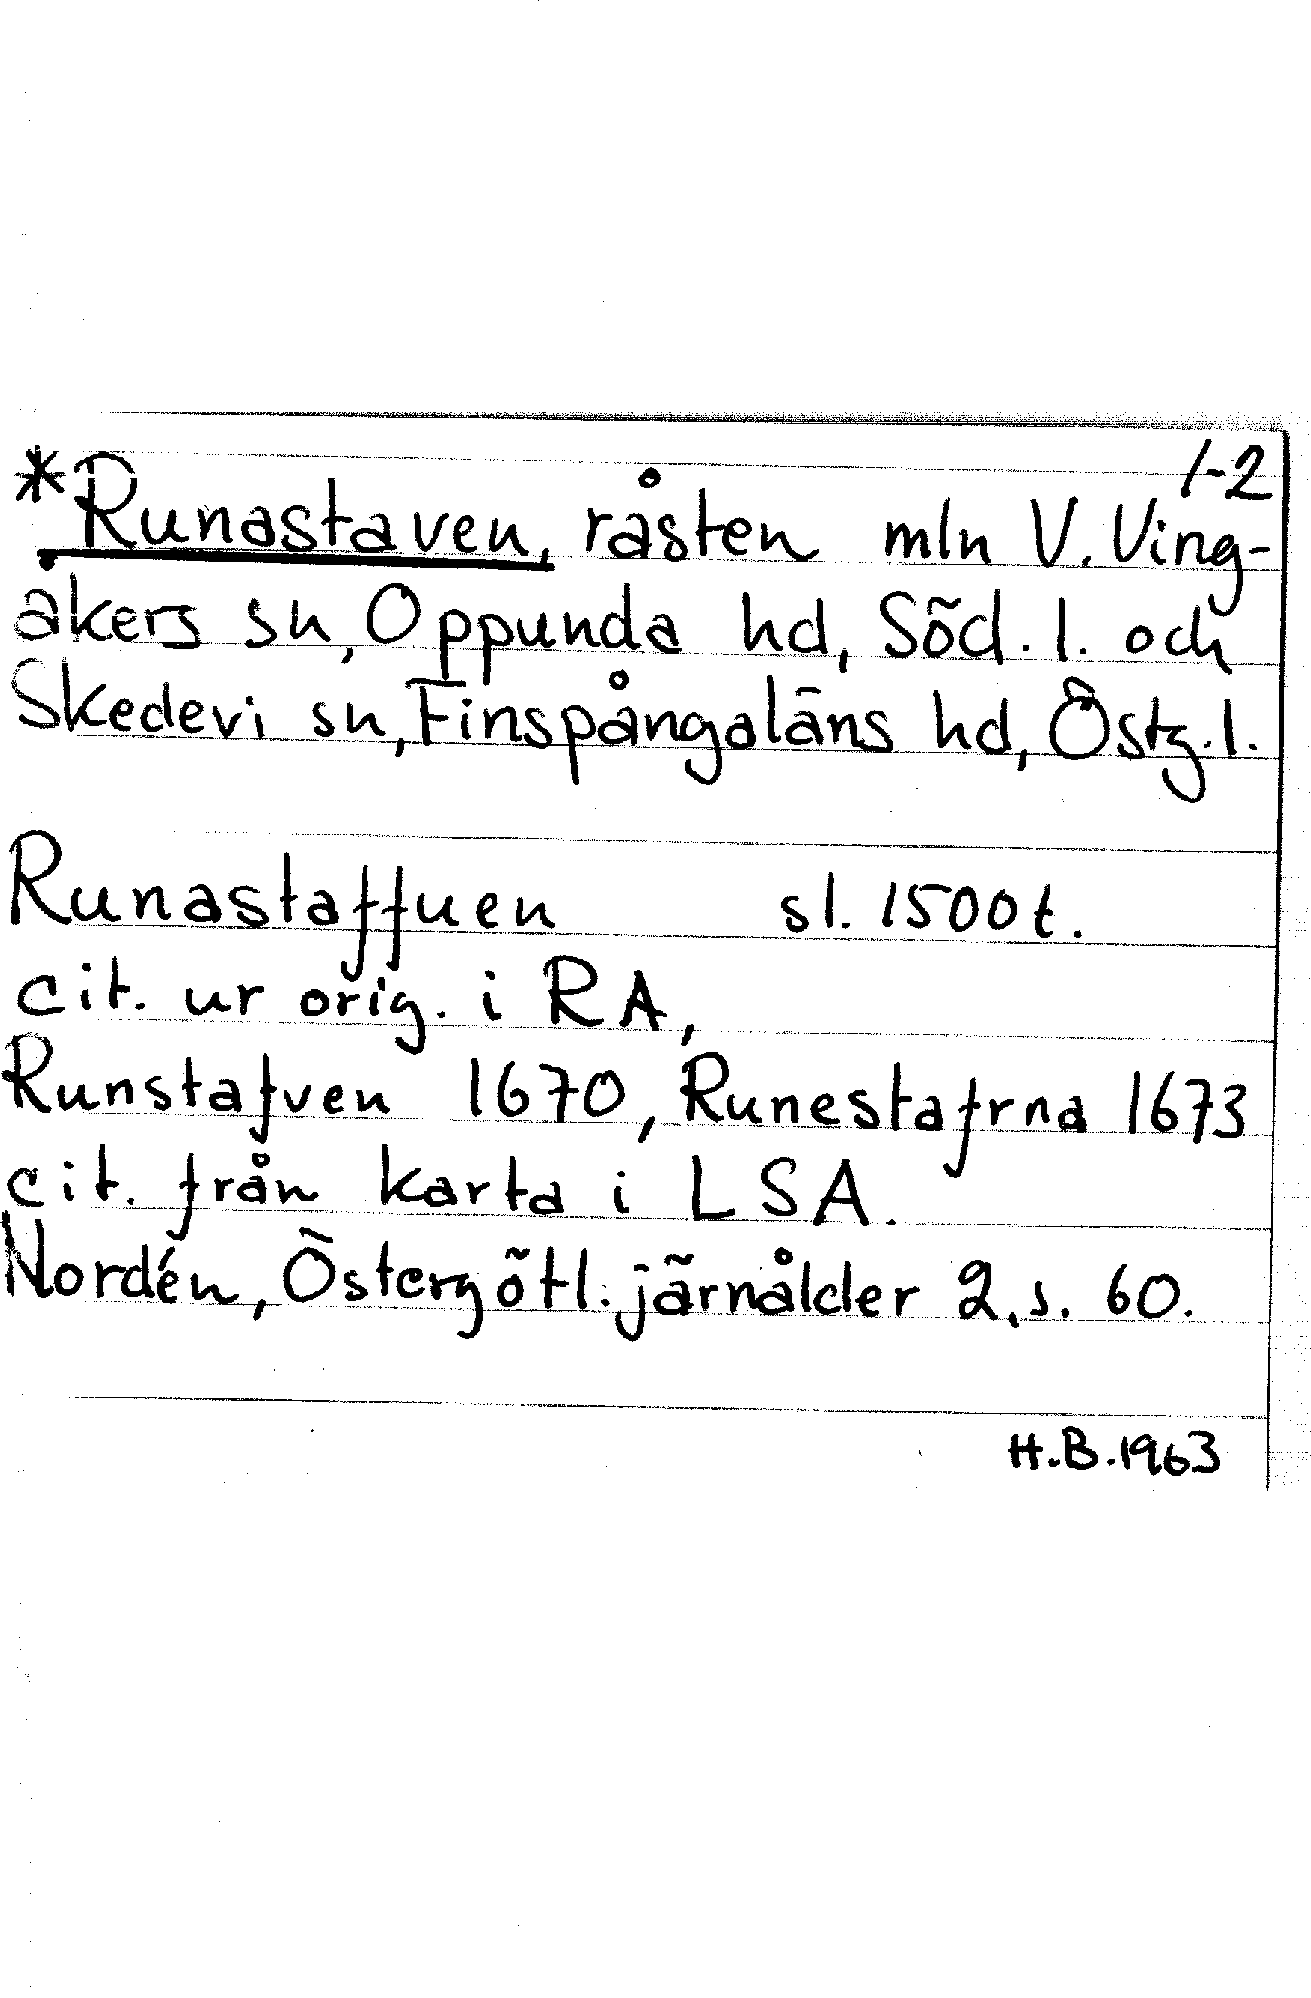 1-2
*Runastaven, råsten mln V. Ving-
åkers sn, Oppunda hd, Söd. l. och
Skedevi sn, Finspångaläns hd, Östg. l.
Runastaffuen sl. 1500 t.
cit. ur orig. i RA,
Runstafven 1670, Runestafrna 1673
cit. från karta i LSA.
Nordén, Östergötl. järnålder 2, s. 60.
H.B. 1963